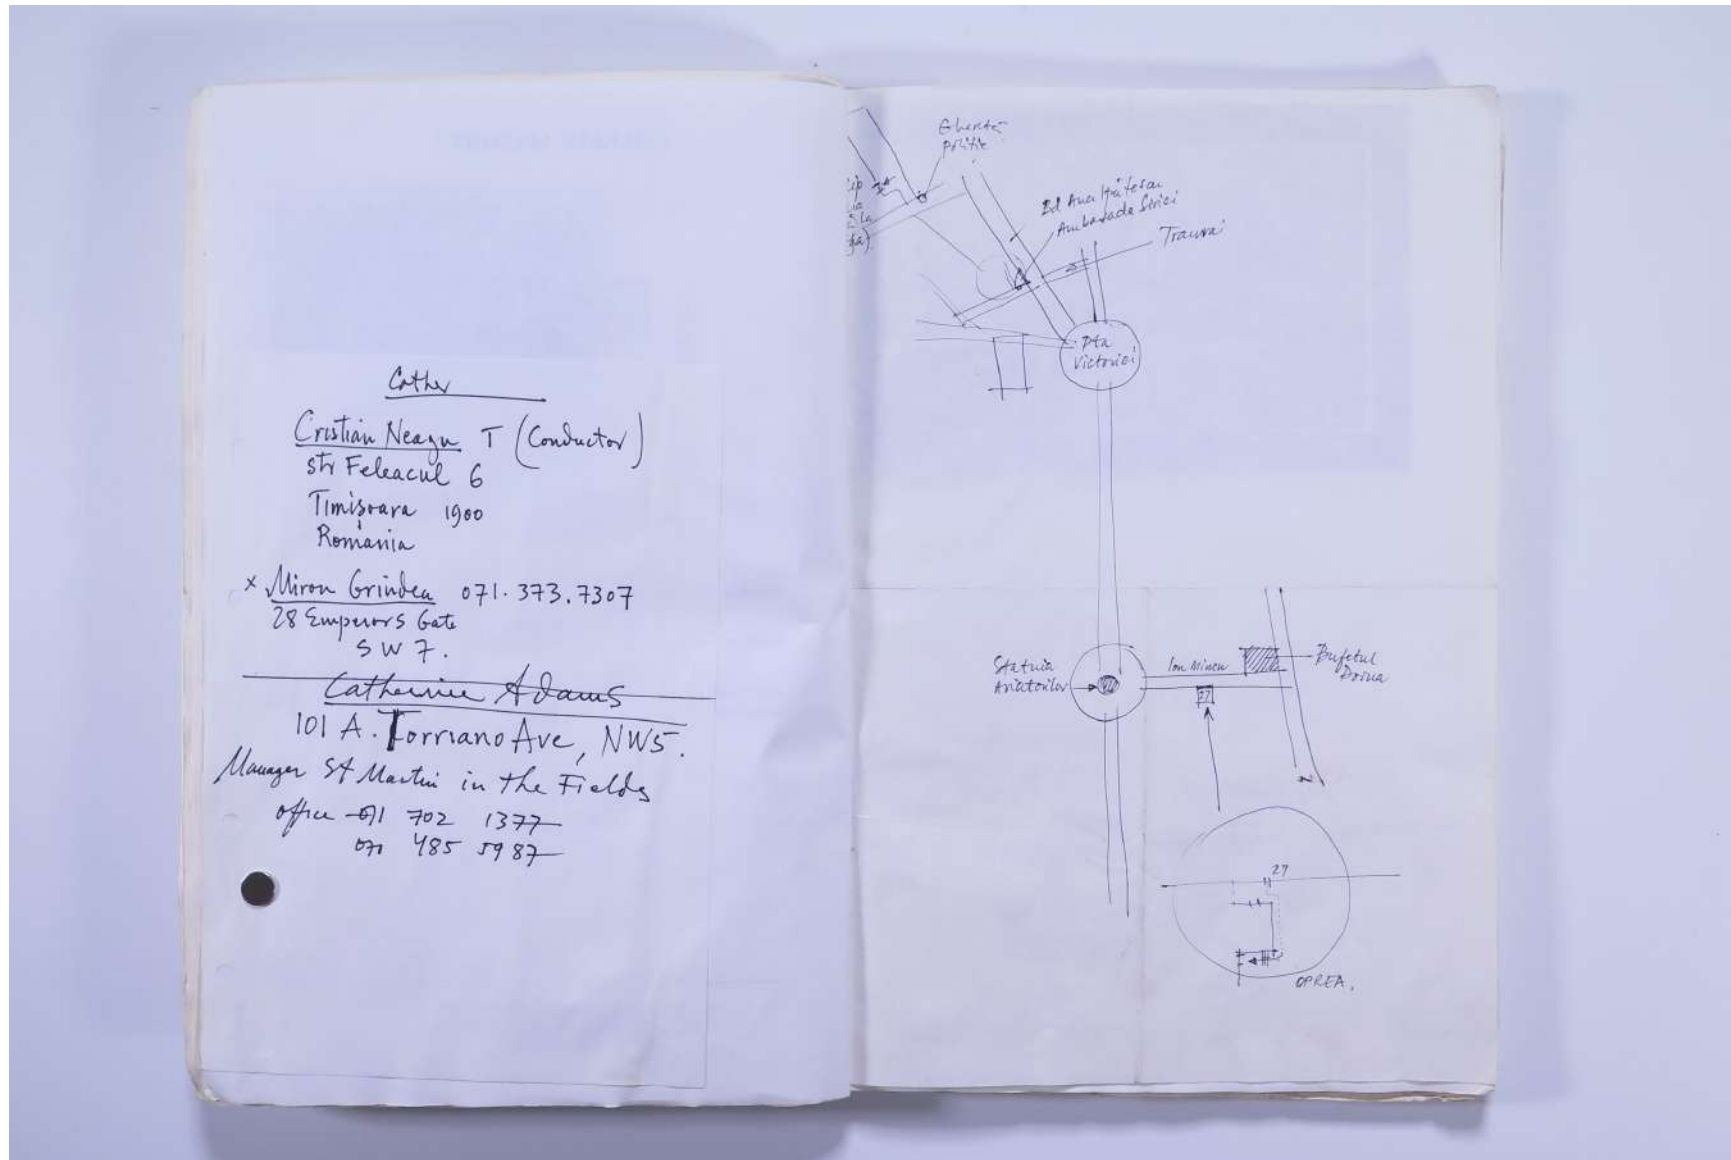 Cather
Cristian Neagu T (Conductor)
str Feleacul 6
Timișoara 1900
Romania
x Miron Grindea 071.373.7307
28 Emperors Gate
SW7.
Catherine Adams
101 A. Torriano Ave, NW5.
Manager St Martin in the Fields
office 071 702 1377
071 485 5987
Gheretă
Poliție
Bd Ana Ipătescu
Ambasada Siriei
Tramvai
Pta
Victoriei
Statuia
Aviatorilor
Ion Mincu
27
Bufetul
Doina
27
OPREA.